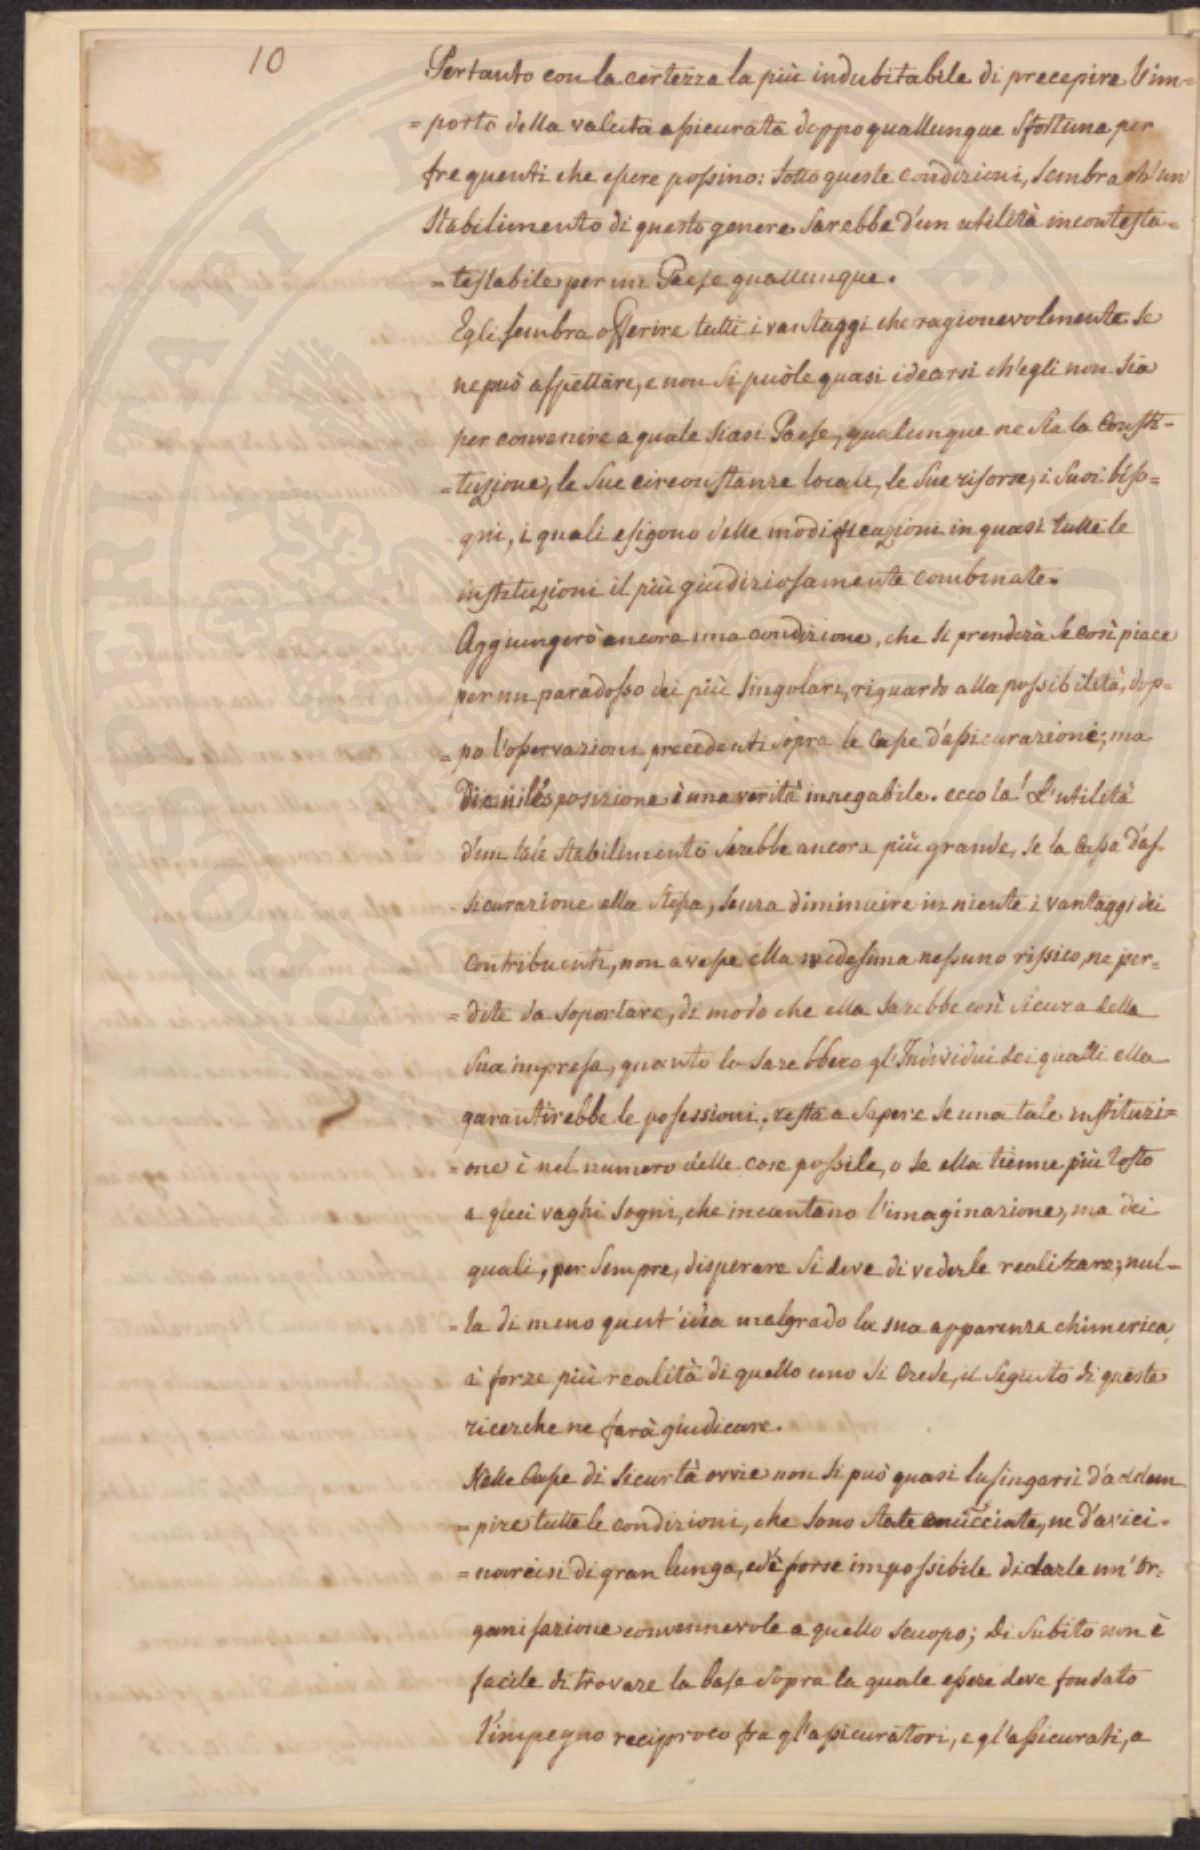 10
Pertanto con la certezza la più indubitabile di precepire l'im=
= porto della valuta assicurata doppo quallunque Sfortuna per
frequenti che essere possino: Sotto queste condizioni, sembra ch'un
Stabilimento di questo genere sarebbe d'un utilità incontesta=
= testabile per un Paese quallunque.
Egli sembra offerire tutti i vantaggi che ragionevolmente se
ne può aspettare, e non si puòle quasi idearsi ch'egli non sia
per convenire a quale siasi Paese, qualunque ne sia la Consti=
= tuzione, le sue circonstanze locali, le sue risorse, i suoi biso=
gni, i quali esigono delle modificazioni in quasi tutte le
instituzioni il più giudiziosamente combinate.
Aggiungerò ancora una condizione, che si prenderà se così piace
per un paradosso dei più singolari, riguardo alla possibilità, dop=
= po l'osservazioni precedenti sopra le Casse d'assicurazione; ma
posizione è una verità innegabile. ecco la! L'utilità
d'un tale stabilimento sarebbe ancora più grande, se la Cassa d'as=
sicurazione ella stessa, senza diminuire in niente i vantaggi dei
Contribuenti, non avesse ella medesima nessuno rissico, ne per=
= dite da soportare, di modo che ella sarebbe così sicura della
sua impresa, quanto lo sarebbero gl'Individui dei qualli ella
garantirebbe le possessioni; resta a sapere se una tale instituzi=
= one è nel numero delle cose possile, o se ella tienne più tosto
a quei vaghi sogni, che incantano l'imaginazione, ma dei
quali, per sempre, disperare si deve di vederle realizare; nul=
= la di meno quest'idea malgrado la sua apparenza chimerica,
à forze più realità di quello uno si crede, il seguito di queste
ricerche ne farà giudicare.
Nelle Casse di sicurtà ovvie non si può quasi lusingarsi d'addem
= pire tutte le condizioni, che sono state enucciate, ne d'avici=
= narcisi di gran lunga, ed'è forse impossibile di darle un'Or=
ganisazione convennevole a quello scuopo; Di subito non è
facile di trovare la base sopra la quale essere deve fondato
l'impegno reciproco fra gl'assicuratori, e gl'assicurati, a